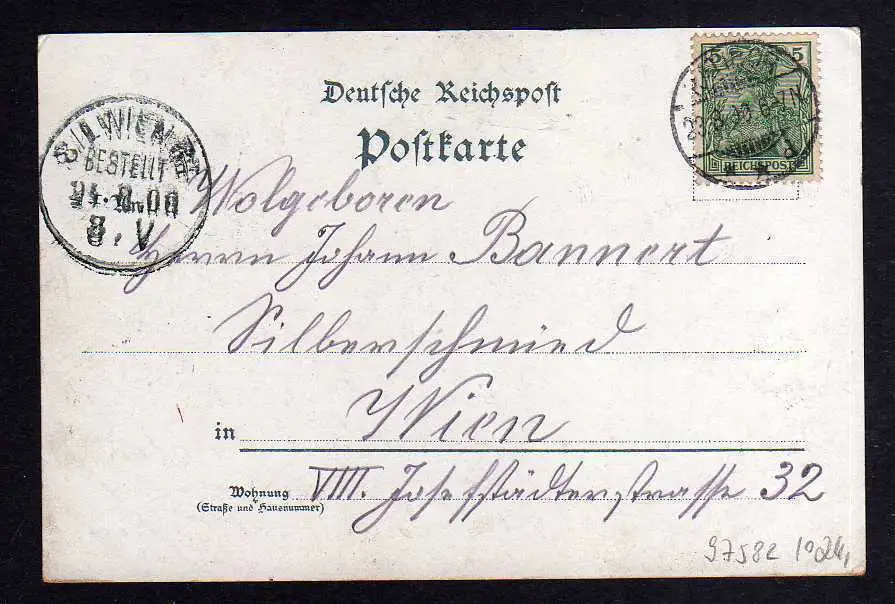 Deutsche Reichspost
Postkarte
5
REICHSPOST
WIEN
BESTELLT
8.V
Wolgeboren
Herrn Johann Bannert
Silberschmied
in Wien
Wohnung VIII. Josefstädterstrasse 32
(Straße und Hausnummer)
97582